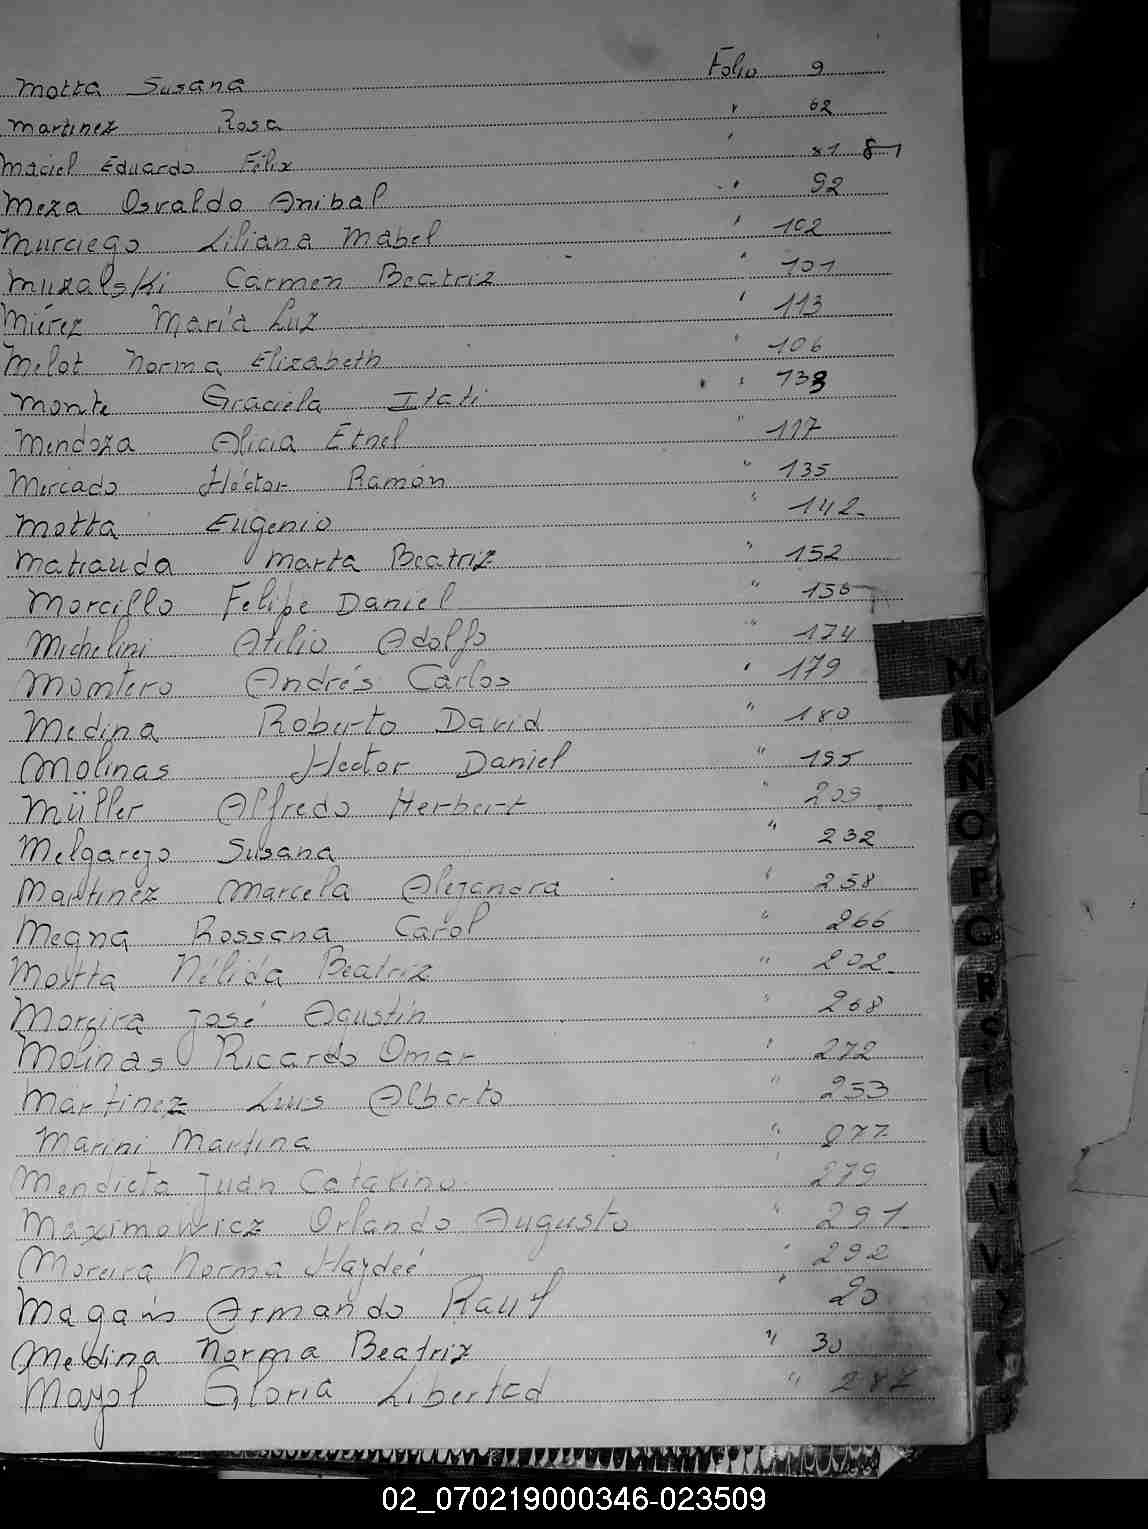 Motta Susana Folio 9
Martinez Rosa " 62
Maciel Eduardo Félix " 81 81
Meza Osvaldo Anibal " 92
Murciego Liliana Mabel " 102
Muzalski Carmen Beatriz " 101
Miérez María Luz " 113
Melot Norma Elizabeth " 106
Monte Graciela Itati " 138
Mendoza Alicia Ethel " 117
Mercado Héctor Ramón " 135
Motta Eugenio " 142
Matiauda Marta Beatriz " 152
Morcillo Felipe Daniel " 156
Michelini Atilio Adolfo " 174
Montero Andrés Carlos " 179
Medina Roberto David " 180
Molinas Hector Daniel " 195
Müller Alfredo Herbert " 209
Melgarejo Susana " 232
Martinez Marcela Alejandra " 258
Megna Rossana Carol " 266
Mostta Nélida Beatriz " 202
Moreira José Agustín " 268
Molinas Ricardo Omar " 272
Martinez Luis Alberto " 253
Marini Martina " 277
Mendieta Juan Catalino " 279
Maximowicz Orlando Augusto " 291
Moreira Norma Haydeé " 292
Armando Raul " 20
Medina Norma Beatriz " 30
Mayol Gloria Libertad "
M
N
Ñ
O
P
Q
R
S
T
U
V
02_070219000346-023509